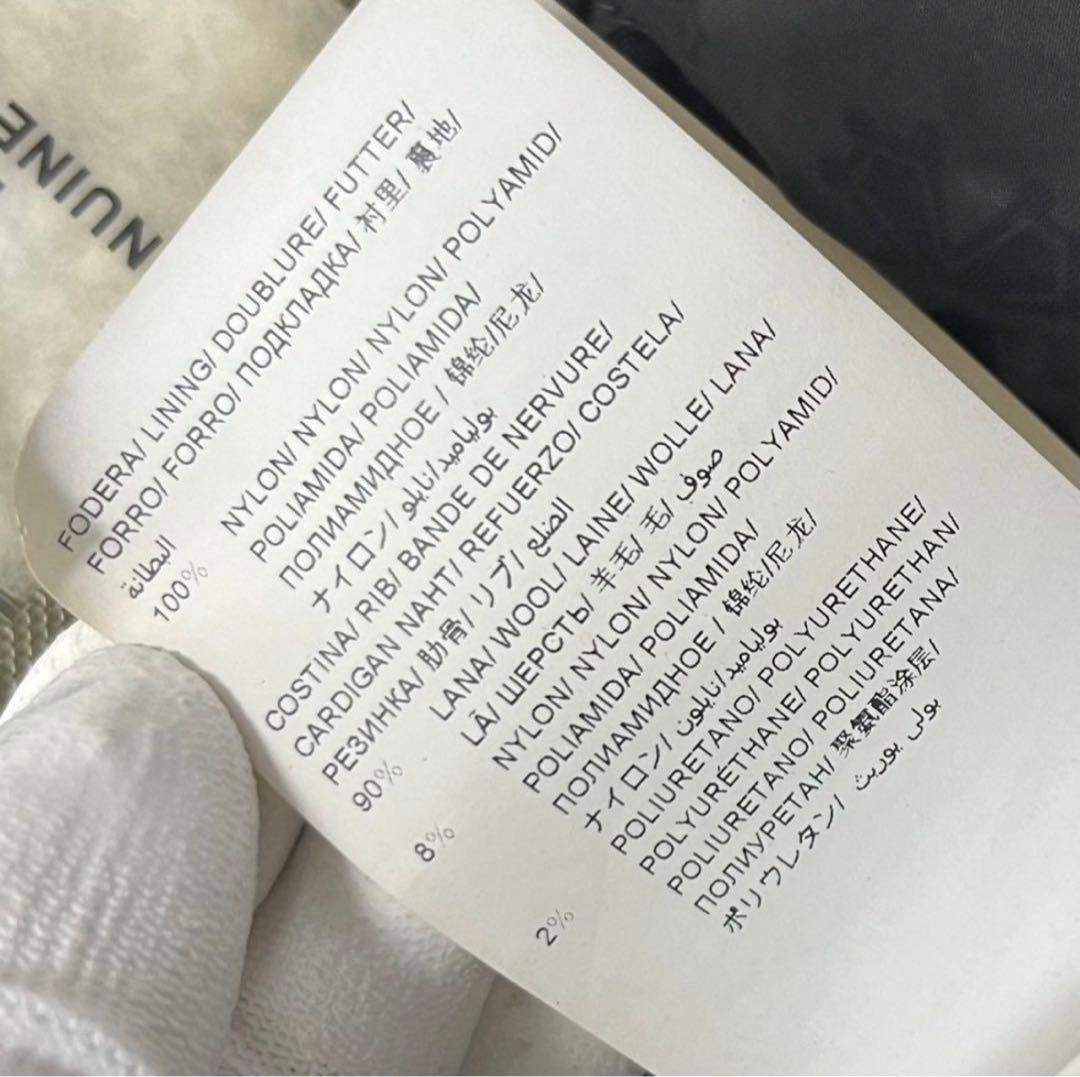 NUINE
FODERA/ LINING/ DOUBLURE/ FUTTER/
FORRO/ FORRO/ ПОДКЛАДКА/ 衬里/ 裏地/
البطانة
100% NYLON/ NYLON/ NYLON/ POLYAMID/
POLIAMIDA/ POLIAMIDA/
ПОЛИАМИДНОЕ / 锦纶/尼龙/
ナイロン/ بولياميد/نايلو
COSTINA/ RIB/ BANDE DE NERVURE/
CARDIGAN NAHT/ REFUERZO/ COSTELA/
РЕЗИНКА/ 肋骨/ リブ/ الضلع
90% LANA/ WOOL/ LAINE/ WOLLE/ LANA/
LÃ/ ШЕРСТЬ/ 羊毛/ 毛/ صوف
8% NYLON/ NYLON/ NYLON/ POLYAMID/
POLIAMIDA/ POLIAMIDA/
ПОЛИАМИДНОЕ / 锦纶/尼龙/
ナイロン/ بولياميد/نايلون
2% POLIURETANO/ POLYURETHANE/
POLYURÉTHANE/ POLYURETHAN/
POLIURETANO/ POLIURETANA/
ПОЛИУРЕТАН/ 聚氨酯涂层/
ポリウレタン/ بولى يوريث